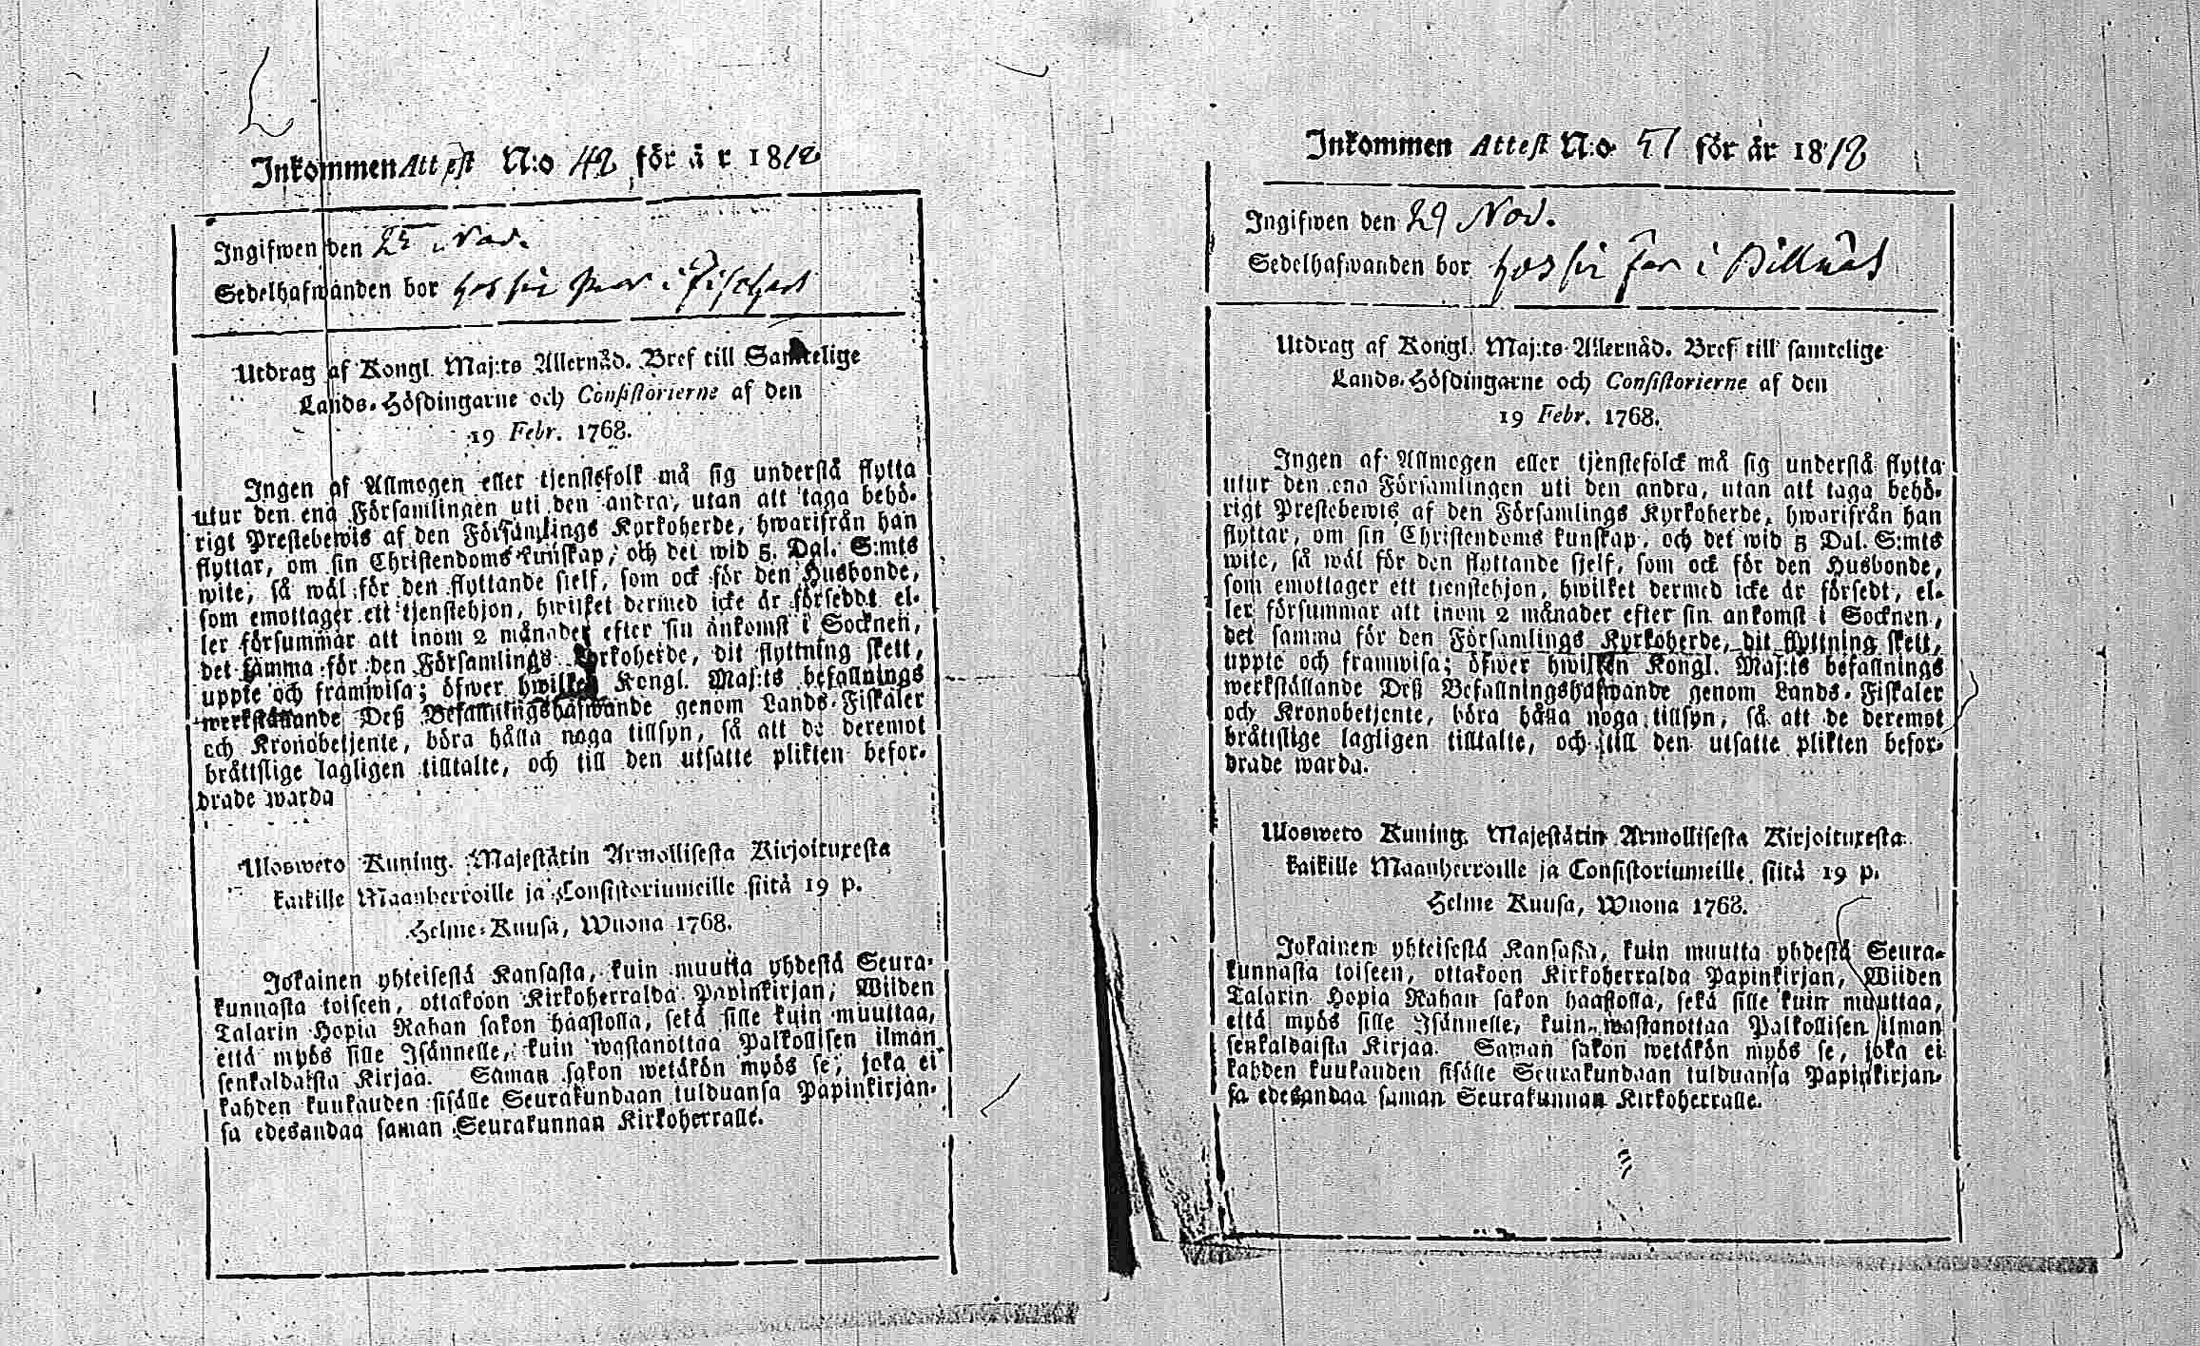 Inkommen Attest N:o 42 för år 1812
Ingifwen den 25 Nov.
Sedelhafwanden bor hos sin i Fischars
Utdrag af Kongl. Maj:ts Allernåd. Bref till Samtelige
Lands-Höfdingarne och Consistorierne af den
19 Febr. 1768.
Ingen af Allmogen eller tjenstefolk må sig understå flytta
utur den ena Församlingen uti den andra, utan att taga behö-
rigt Prestebewis af den Församlings Kyrkoherde, hwarifrån han
flyttar, om sin Christendoms kunskap, och det wid 5. Dal. S:mts
wite, så wäl för den flyttande sielf, som ock för den Husbonde,
som emottager ett tjenstehjon, hwilket dermed icke är förseddt el-
ler försummar att inom 2 månader efter sin ankomst i Socknen,
det samma för den Församlings Kyrkoherde, dit flyttning skett,
uppte och framwisa; öfwer hwilken Kongl. Maj:ts befallnings
werkställande Deß Befallningshafwande genom Lands-Fiskaler
och Kronobetjente, böra hålla noga tillsyn, så att de deremot
bråttslige lagligen tilltalte, och till den utsatte plikten befor-
drade warda
Ulosweto Kuning. Majestätin Armollisesta Kirjoituxesta
kaikille Maanherroille ja Consistoriumeille siitä 19 p.
Helme-Kuusa, Wuona 1768.
Jokainen yhteisestä Kansasta, kuin muutta yhdestä Seura-
kunnasta toiseen, ottakoon Kirkoherralda Papinkirjan, Wiiden
Talarin Hopia Rahan sakon haastolla, sekä sille kuin muuttaa,
että myös sille Isännelle, kuin wastanottaa Palkollisen ilman
senkaldaista Kirjaa. Saman sakon wetäkön myös se, joka ei
kahden kuukauden sisälle Seurakundaan tulduansa Papinkirjan-
sa edesandaa saman Seurakunnan Kirkoherralle.
Inkommen Attest N:o 51 för år 1812
Ingifwen den 29 Nov.
Sedelhafwanden bor hos sin far i Billnäs
Utdrag af Kongl. Maj:ts Allernåd. Bref till samtelige
Lands-Höfdingarne och Consistorierne af den
19 Febr. 1768.
Ingen af Allmogen eller tjenstefolck må sig understå flytta
utur den ena Församlingen uti den andra, utan att taga behö-
rigt Prestebewis af den Församlings Kyrkoherde, hwarifrån han
flyttar, om sin Christendoms kunskap, och det wid 5 Dal. S:mts
wite, så wäl för den flyttande sjelf, som ock för den Husbonde,
som emottager ett tienstehjon, hwilket dermed icke är försedt, el-
ler försummar att inom 2 månader efter sin ankomst i Socknen,
det samma för den Församlings Kyrkoherde, dit flyttning skett,
uppte och framwisa; öfwer hwilken Kongl. Maj:ts befallnings
werkställande Deß Befallningshafwande genom Lands-Fiskaler
och Kronobetjente, böra hålla noga tillsyn, så att de deremot
bråttslige lagligen tilltalte, och till den utsatte plikten befor-
drade warda.
Ulosweto Kuning. Majestätin Armollisesta Kirjoituxesta
kaikille Maanherroille ja Consistoriumeille siitä 19 p.
Helme Kuusa, Wuona 1768.
Jokainen yhteisestä Kansasta, kuin muutta yhdestä Seura-
kunnasta toiseen, ottakoon Kirkoherralda Papinkirjan, Wiiden
Talarin Hopia Rahan sakon haastolla, sekä sille kuin muuttaa,
että myös sille Isännelle, kuin wastanottaa Palkollisen ilman
senkaldaista Kirjaa. Saman sakon wetäkön myös se, joka ei
kahden kuukauden sisälle Seurakundaan tulduansa Papinkirjan-
sa edesandaa saman Seurakunnan Kirkoherralle.